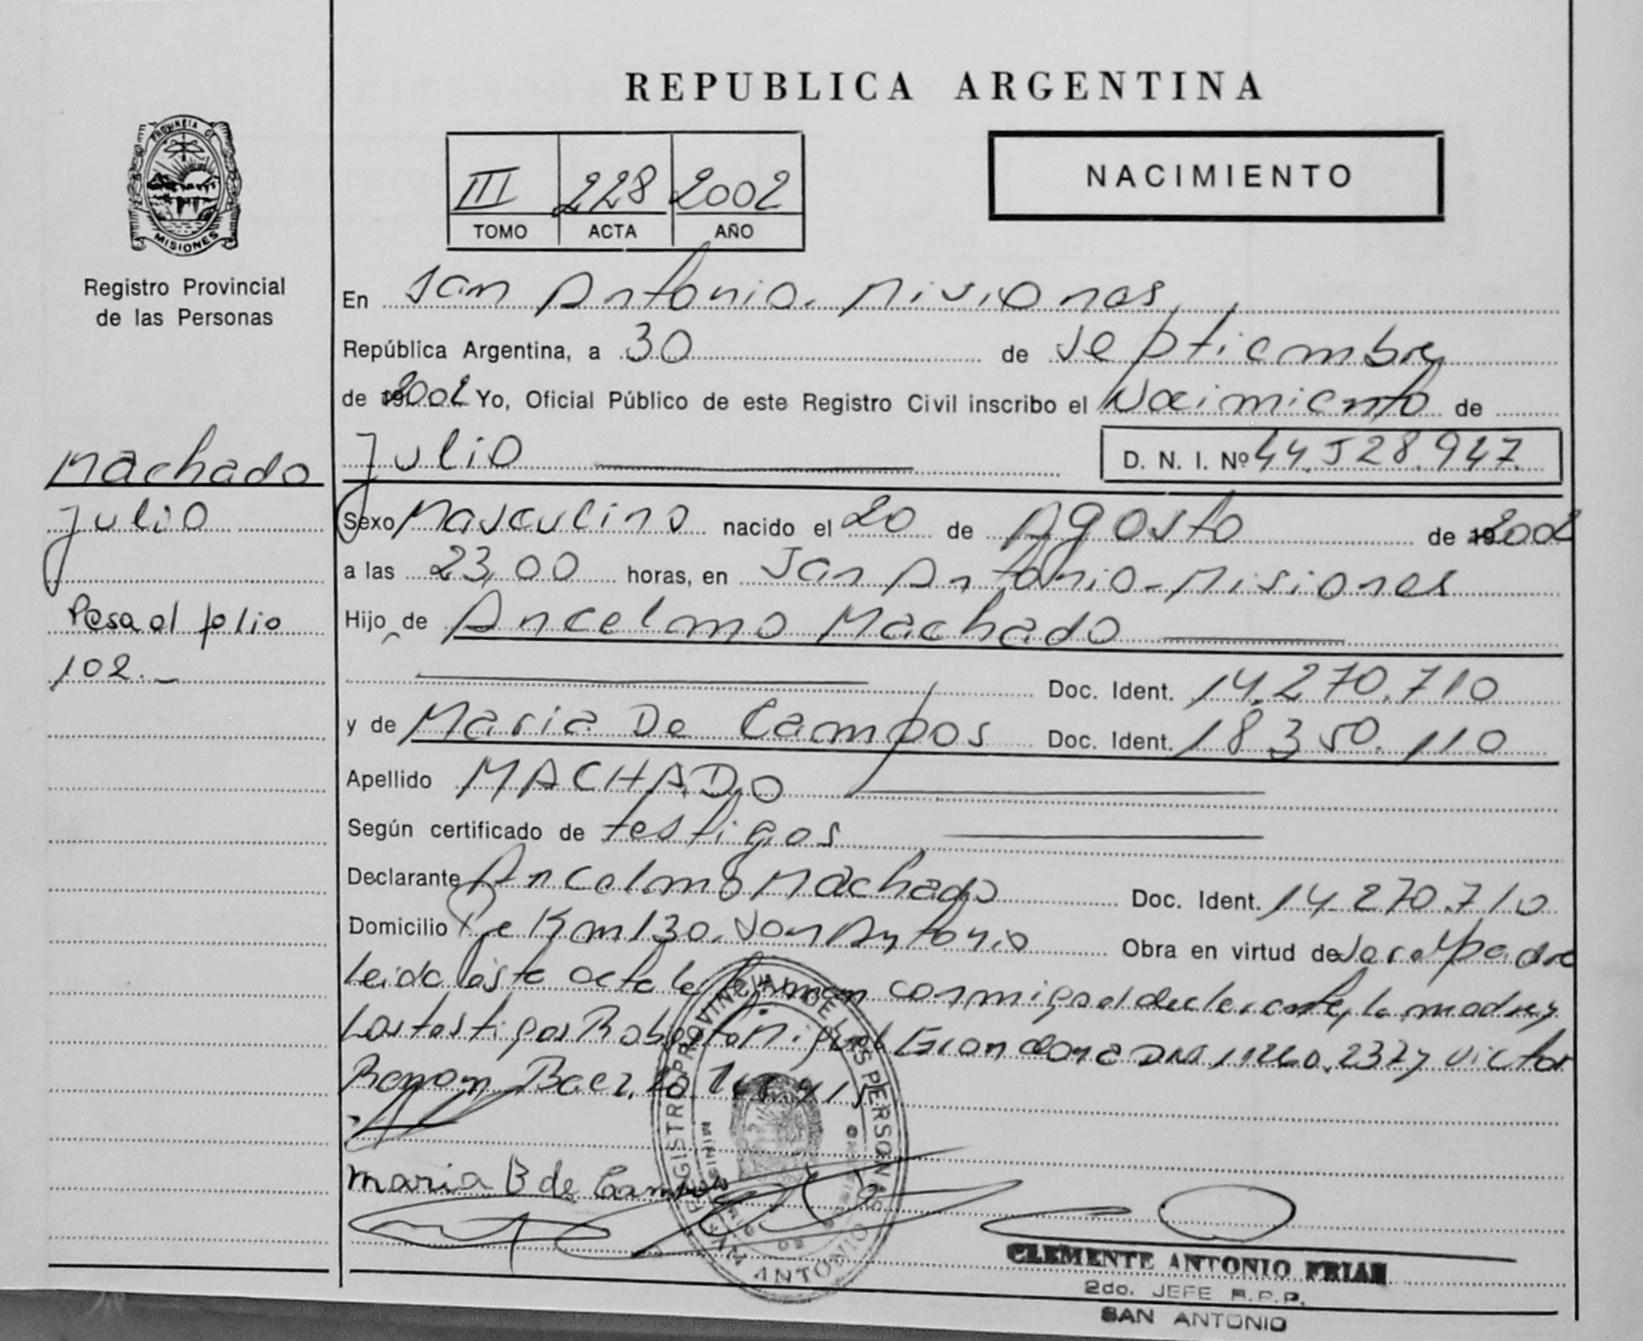 REPUBLICA ARGENTINA
PROVINCIA DE
MISIONES
Registro Provincial
de las Personas
III 228 2002
TOMO ACTA AÑO
NACIMIENTO
En San Antonio. Misiones
República Argentina, a 30 de Septiembre
de 2002 Yo, Oficial Público de este Registro Civil inscribo el Nacimiento de
Julio D. N. I. Nº 44.528.947.
Machado
Julio
Pasa al folio
102.
Sexo Masculino nacido el 20 de Agosto de 2002
a las 23,00 horas, en San Antonio-Misiones
Hijo de Ancelmo Machado
Doc. Ident. 14.270.710
y de Maria De Campos Doc. Ident. 18.350.110
Apellido MACHADO
Según certificado de testigos
Declarante Ancelmo Machado Doc. Ident. 14.270.710
Domicilio Km 130. San Antonio Obra en virtud de ser el padre
Leida este acta la firman conmigo el declarante, la madre y
Los testigos DNI 11260.237 y Victor
Ramon Baez,
maria B de Campos
REGISTRO PROVINCIAL DE LAS PERSONAS
SAN ANTONIO
CLEMENTE ANTONIO FRIAS
2do. JEFE R.P.P.
SAN ANTONIO